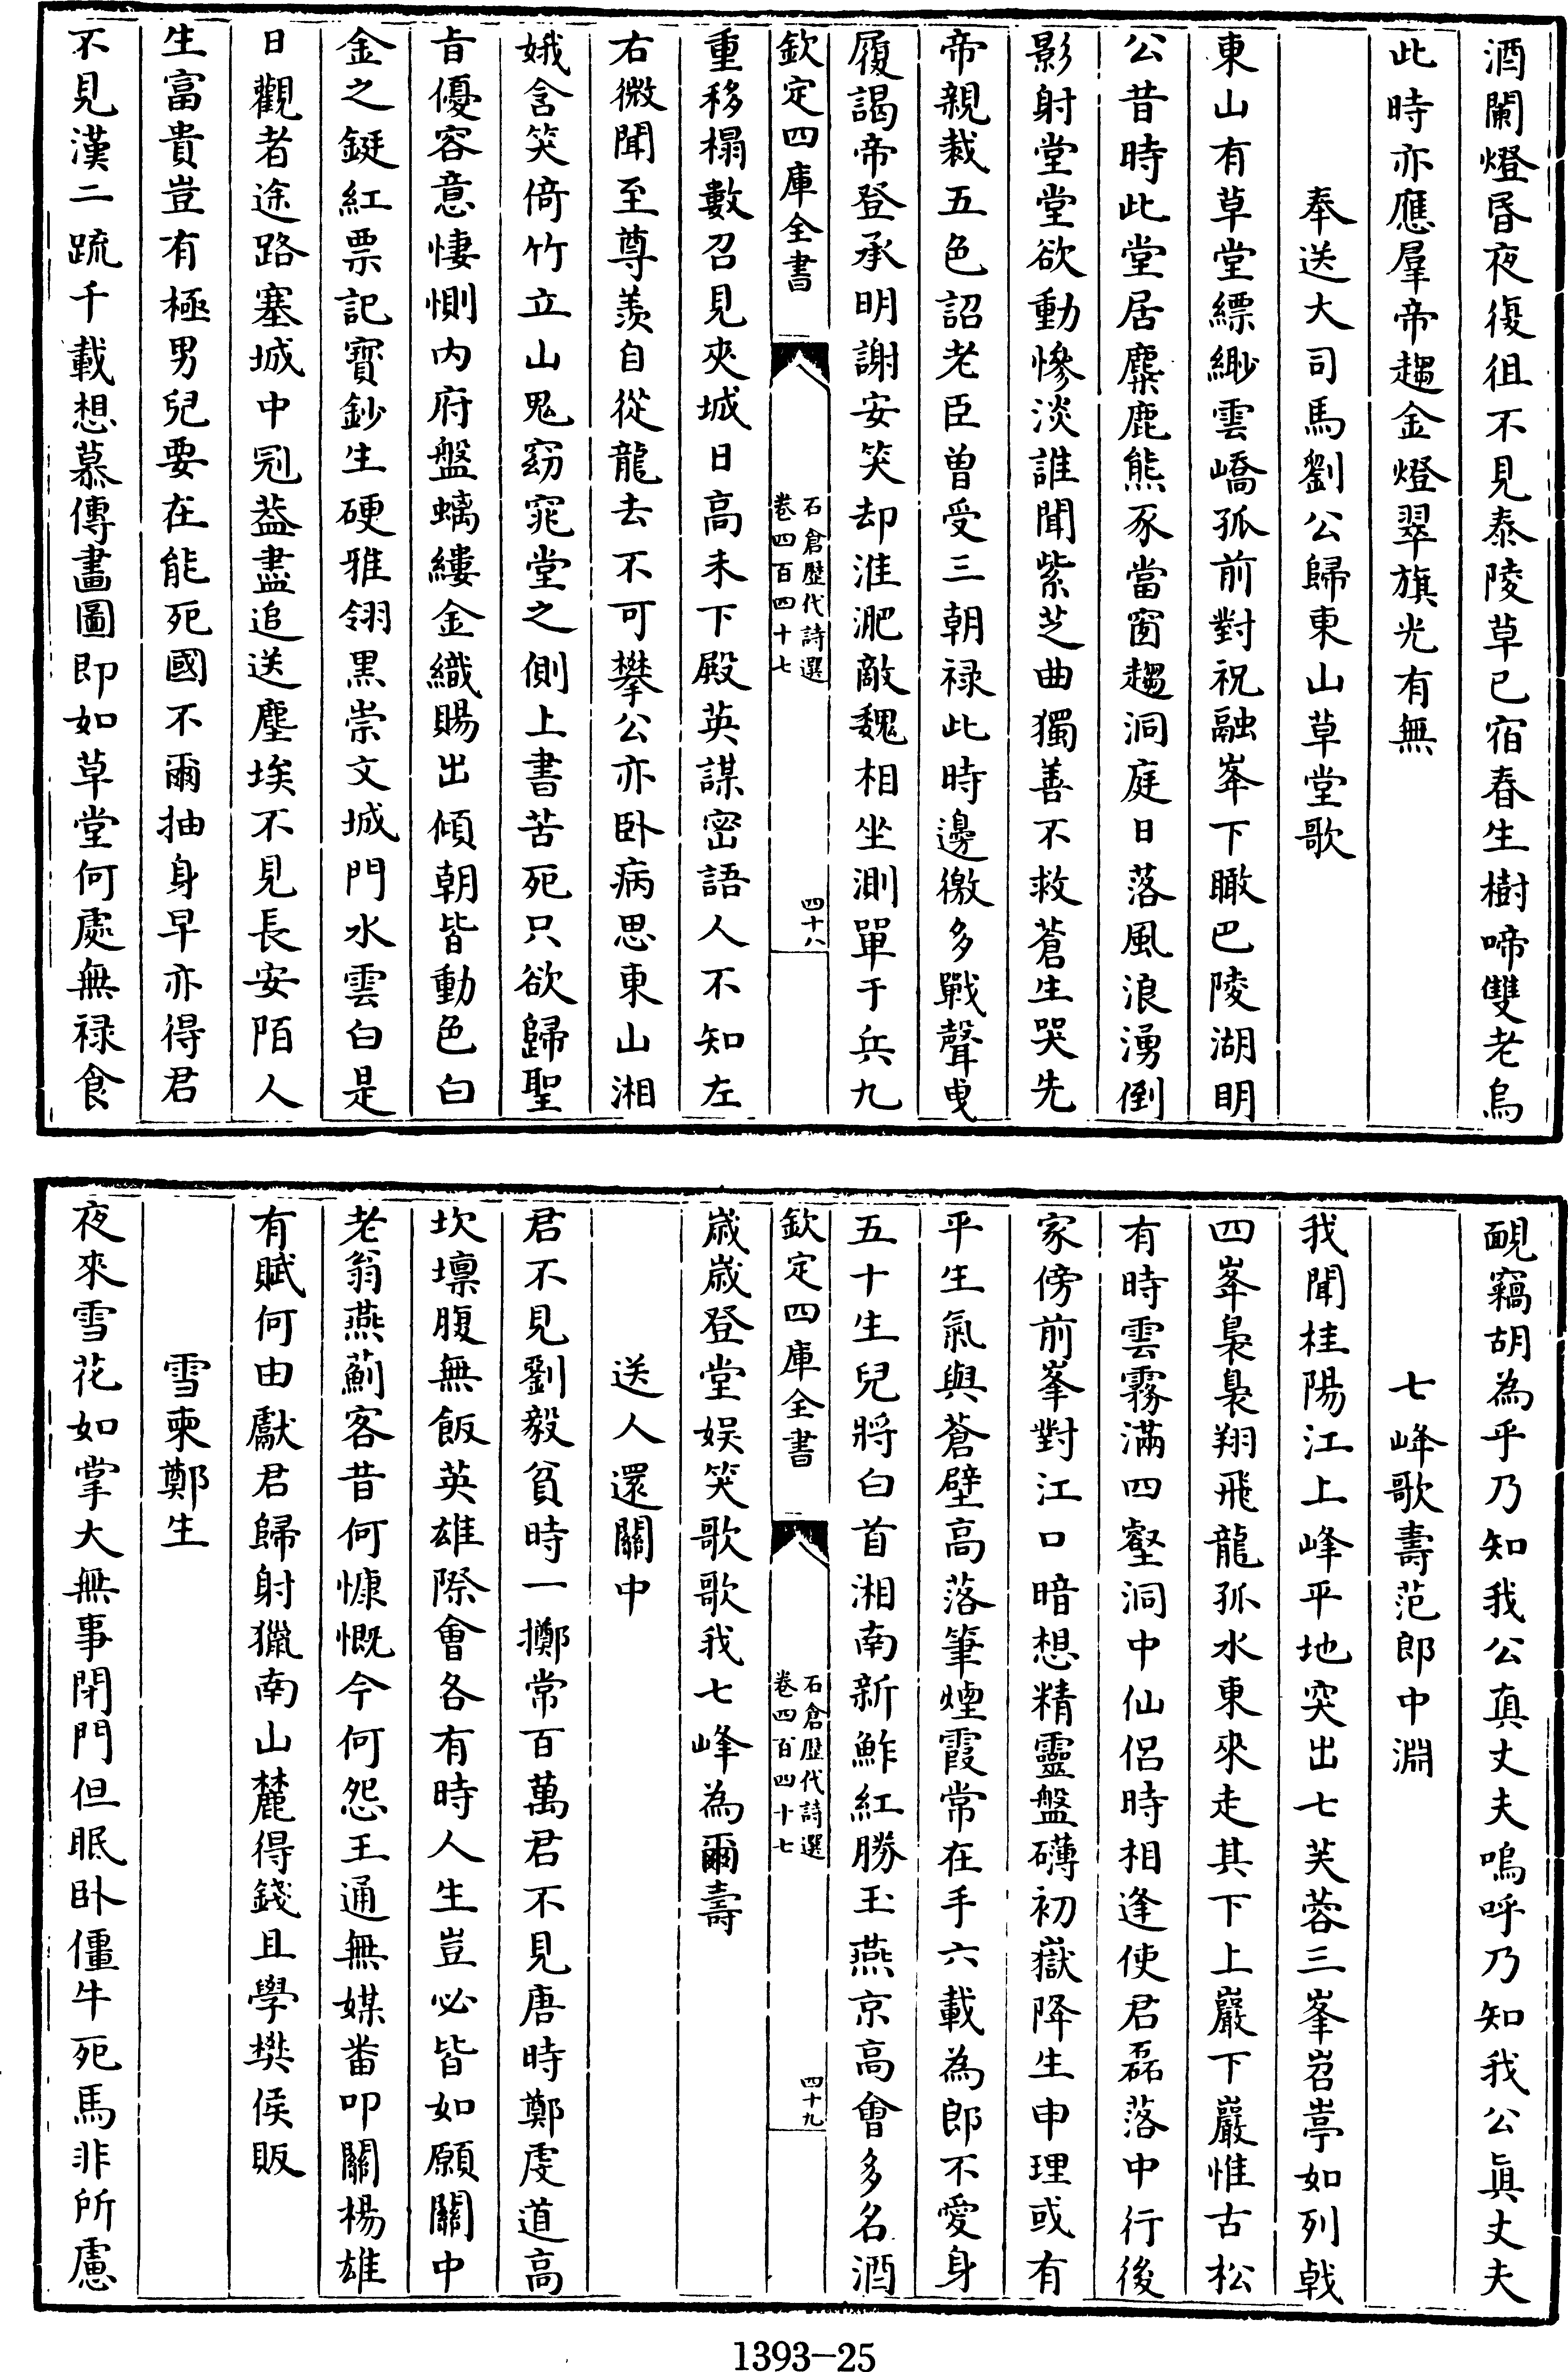 酒闌燈昏夜復徂不見泰陵草已宿春生樹啼雙老烏
此時亦應羣帝趨金燈翠旗光有無
奉送大司馬劉公歸東山草堂歌
東山有草堂縹緲雲嶠孤前對祝融峯下瞰巴陵湖明
公昔時此堂居麋鹿熊豕當窗趨洞庭日落風浪湧倒
影射堂堂欲動慘淡誰聞紫芝曲獨善不救蒼生哭先
帝親裁五色詔老臣曽受三朝禄此時邊徼多戰聲曵
履謁帝登承明謝安笑却淮淝敵魏相坐測單于兵九
欽定四庫全書
石倉歴代詩選
卷四百四十七
四十八
重移榻數召見夾城日高未下殿英謀密語人不知左
右微聞至尊羨自從龍去不可攀公亦卧病思東山湘
娥含笑倚竹立山鬼窈窕堂之側上書苦死只欲歸聖
㫖優容意悽惻内府盤螭縷金織賜出傾朝皆動色白
金之鋌紅票記寳鈔生硬雅翎黒崇文城門水雲白是
日觀者途路塞城中冠葢盡追送塵埃不見長安陌人
生富貴豈有極男兒要在能死國不爾抽身早亦得君
不見漢二疏千載想慕傳畫圖即如草堂何處無禄食
靦竊胡為乎乃知我公真丈夫嗚呼乃知我公眞丈夫
七峰歌壽范郎中淵
我聞桂陽江上峰平地突出七芙蓉三峯岧㟁如列戟
四峯裊裊翔飛龍孤水東來走其下上巖下巖惟古松
有時雲霧滿四壑洞中仙侶時相逢使君磊落中行後
家傍前峯對江口暗想精靈盤礴初嶽降生申理或有
平生氣與蒼壁高落筆煙霞常在手六載為郎不愛身
五十生兒將白首湘南新鮓紅勝玉燕京高會多名酒
欽定四庫全書
石倉歴代詩選
卷四百四十七
四十九
嵗嵗登堂娱笑歌歌我七峰為爾壽
送人還關中
君不見劉毅貧時一擲常百萬君不見唐時鄭虔道高
坎壈腹無飯英雄際會各有時人生豈必皆如願關中
老翁燕薊客昔何慷慨今何怨王通無媒畨叩關楊雄
有賦何由獻君歸射獵南山麓得錢且學樊侯販
雪柬鄭生
夜來雪花如掌大無事閉門但眠卧僵牛死馬非所慮
1393-25